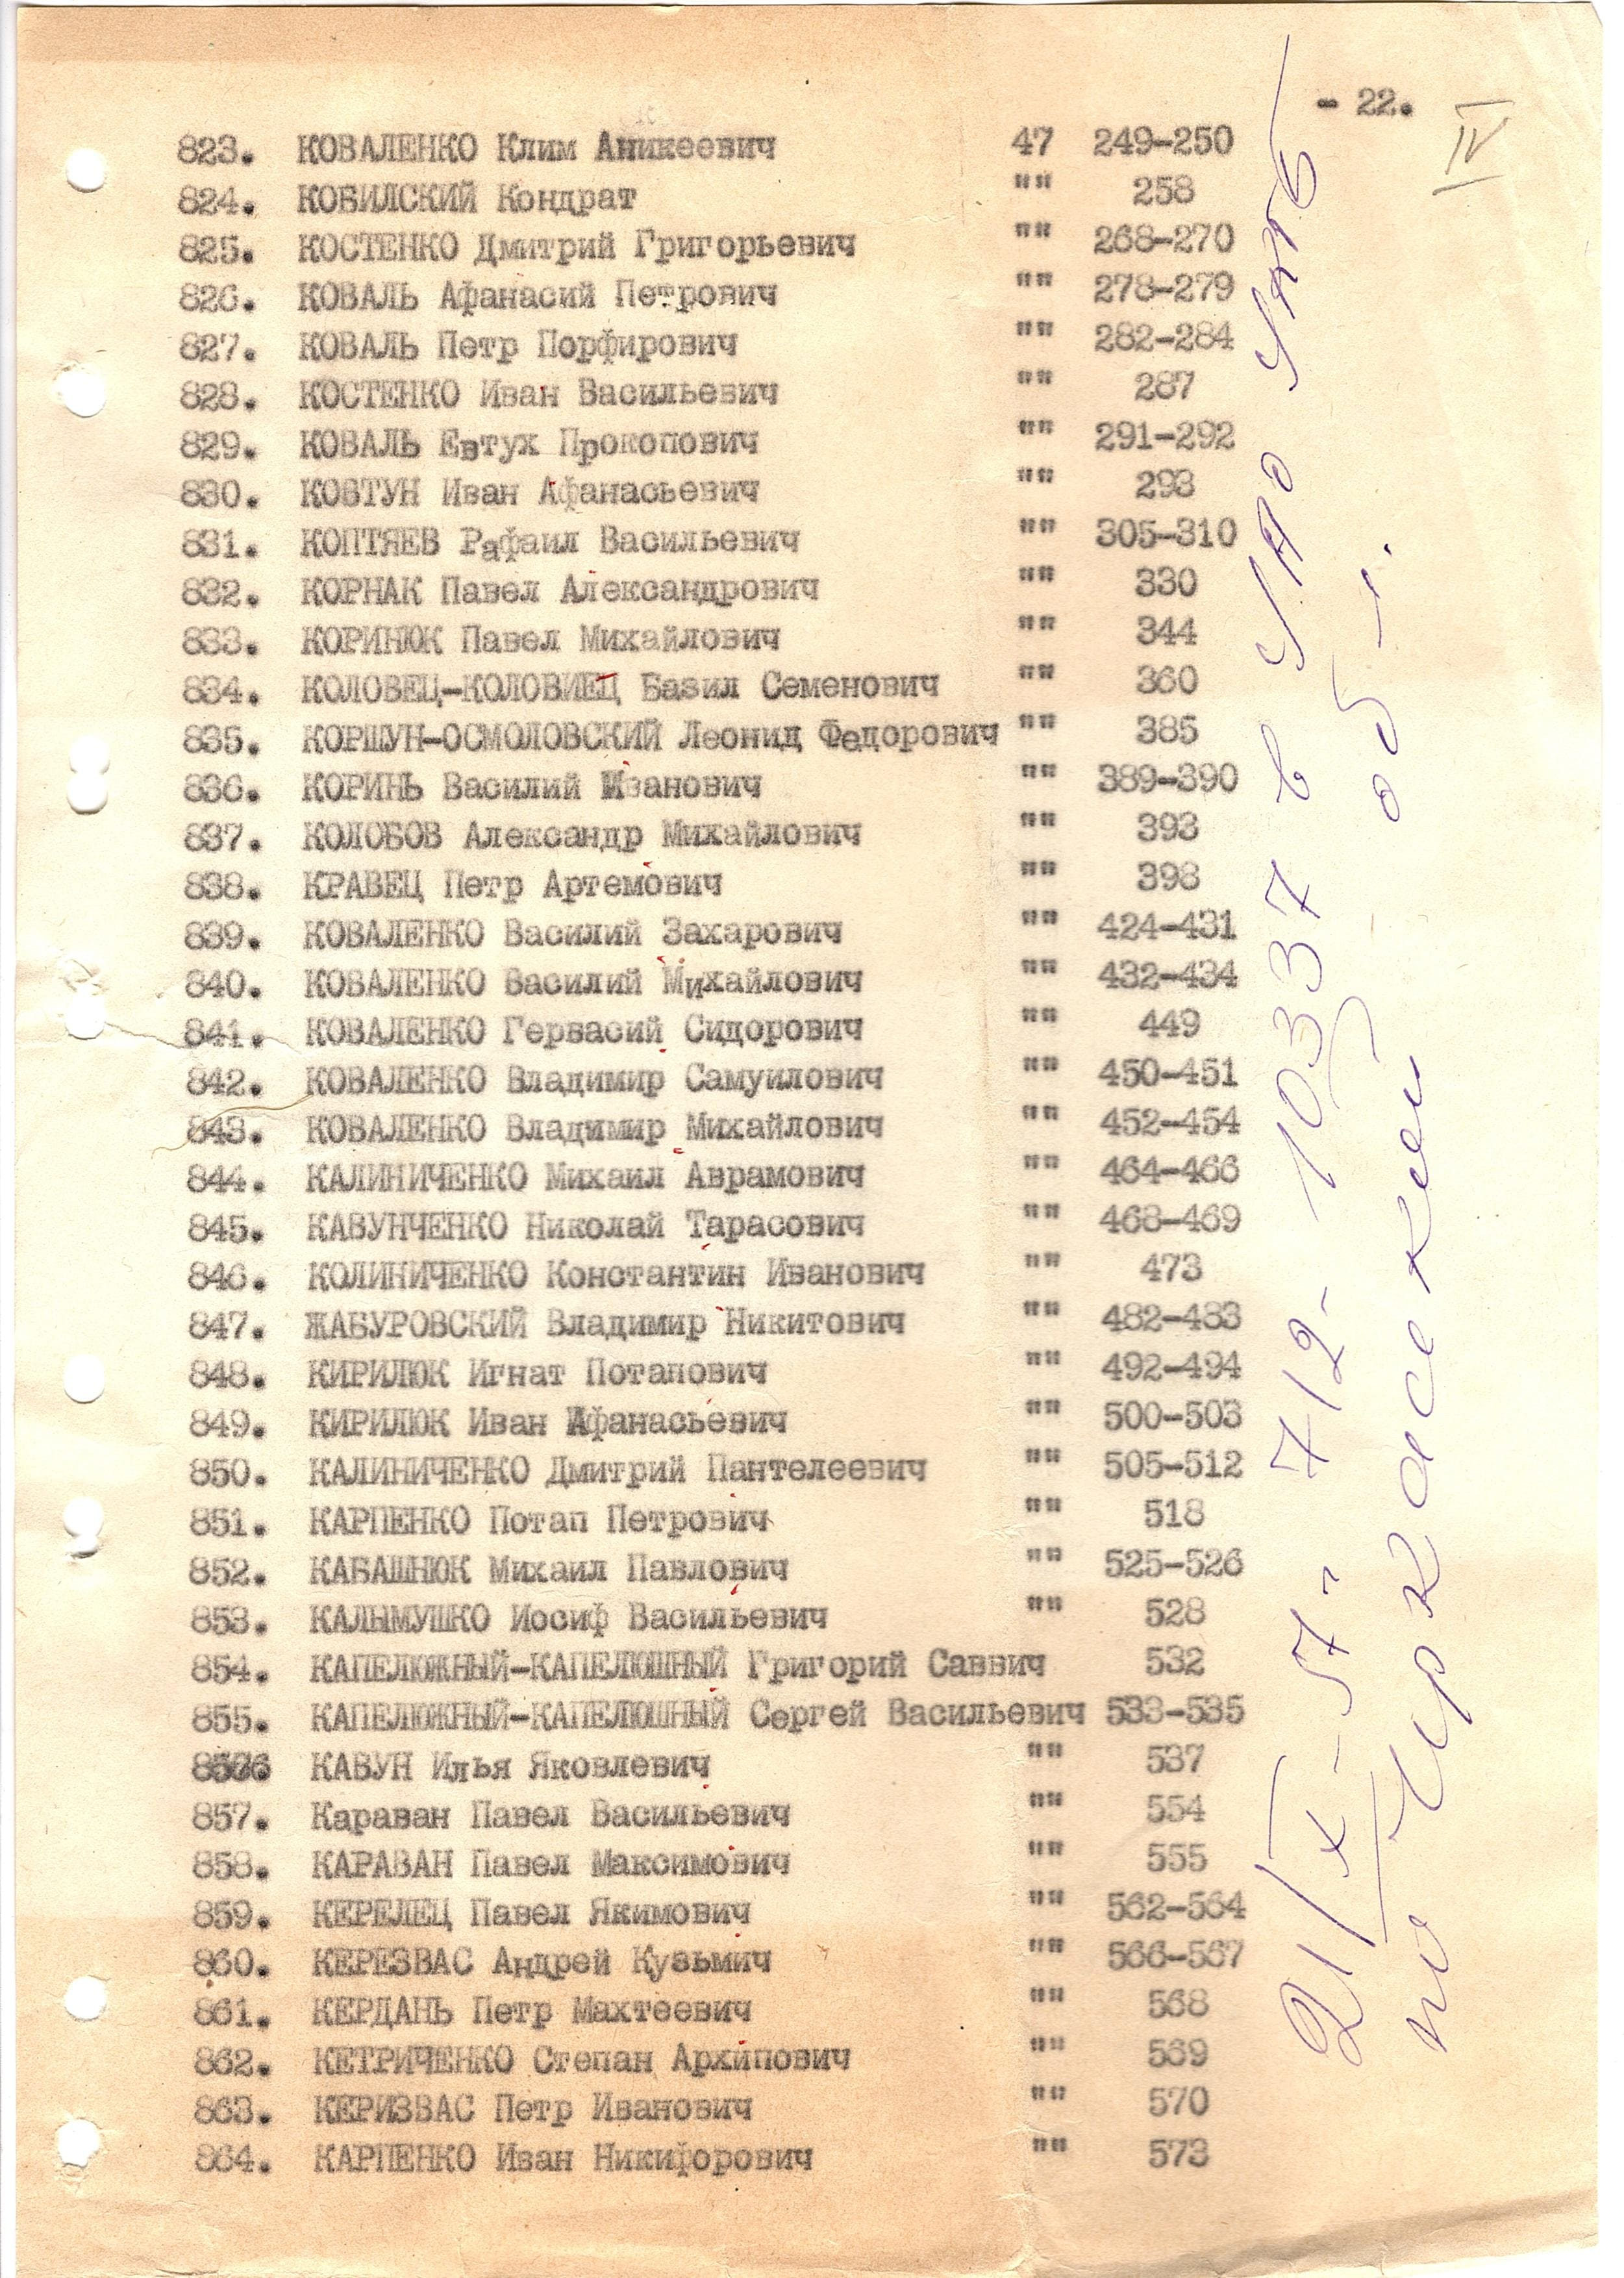 - 22.
IV
823. КОВАЛЕНКО Клим Аникеевич 47 249-250
824. КОБИЛСКИЙ Кондрат "" 258
825. КОСТЕНКО Дмитрий Григорьевич "" 268-270
826. КОВАЛЬ Афанасий Петрович "" 278-279
827. КОВАЛЬ Петр Порфирович "" 282-284
828. КОСТЕНКО Иван Васильевич "" 287
829. КОВАЛЬ Евтух Прокопович "" 291-292
830. КОВТУН Иван Афанасьевич "" 293
831. КОПТЯЕВ Рафаил Васильевич "" 305-310
832. КОРНАК Павел Александрович "" 330
833. КОРИНЮК Павел Михайлович "" 344
834. КОЛОВЕЦ-КОЛОВИЕЦ Базил Семенович "" 360
835. КОРШУН-ОСМОЛОВСКИЙ Леонид Федорович "" 385
836. КОРИНЬ Василий Иванович "" 389-390
837. КОЛОБОВ Александр Михайлович "" 393
838. КРАВЕЦ Петр Артемович "" 398
839. КОВАЛЕНКО Василий Захарович "" 424-431
840. КОВАЛЕНКО Василий Михайлович "" 432-434
841. КОВАЛЕНКО Гервасий Сидорович "" 449
842. КОВАЛЕНКО Владимир Самуилович "" 450-451
843. КОВАЛЕНКО Владимир Михайлович "" 452-454
844. КАЛИНИЧЕНКО Михаил Аврамович "" 464-466
845. КАВУНЧЕНКО Николай Тарасович "" 468-469
846. КОЛИНИЧЕНКО Константин Иванович "" 473
847. ЖАБУРОВСКИЙ Владимир Никитович "" 482-483
848. КИРИЛЮК Игнат Потапович "" 492-494
849. КИРИЛЮК Иван Афанасьевич "" 500-503
850. КАЛИНИЧЕНКО Дмитрий Пантелеевич "" 505-512
851. КАРПЕНКО Потап Петрович "" 518
852. КАБАШНЮК Михаил Павлович "" 525-526
853. КАЛЫМУШКО Иосиф Васильевич "" 528
854. КАПЕЛЮЖНЫЙ-КАПЕЛЮШНЫЙ Григорий Саввич 532
855. КАПЕЛЮЖНЫЙ-КАПЕЛЮШНЫЙ Сергей Васильевич 533-535
856 КАВУН Илья Яковлевич "" 537
857. Караван Павел Васильевич "" 554
858. КАРАВАН Павел Максимович "" 555
859. КЕРЕЛЕЦ Павел Якимович "" 562-564
860. КЕРЕЗВАС Андрей Кузьмич "" 566-567
861. КЕРДАНЬ Петр Махтеевич "" 568
862. КЕТРИЧЕНКО Степан Архипович "" 569
863. КЕРИЗВАС Петр Иванович "" 570
864. КАРПЕНКО Иван Никифорович "" 573
21/X-57г 712- 10337 в
по Черкасской обл.